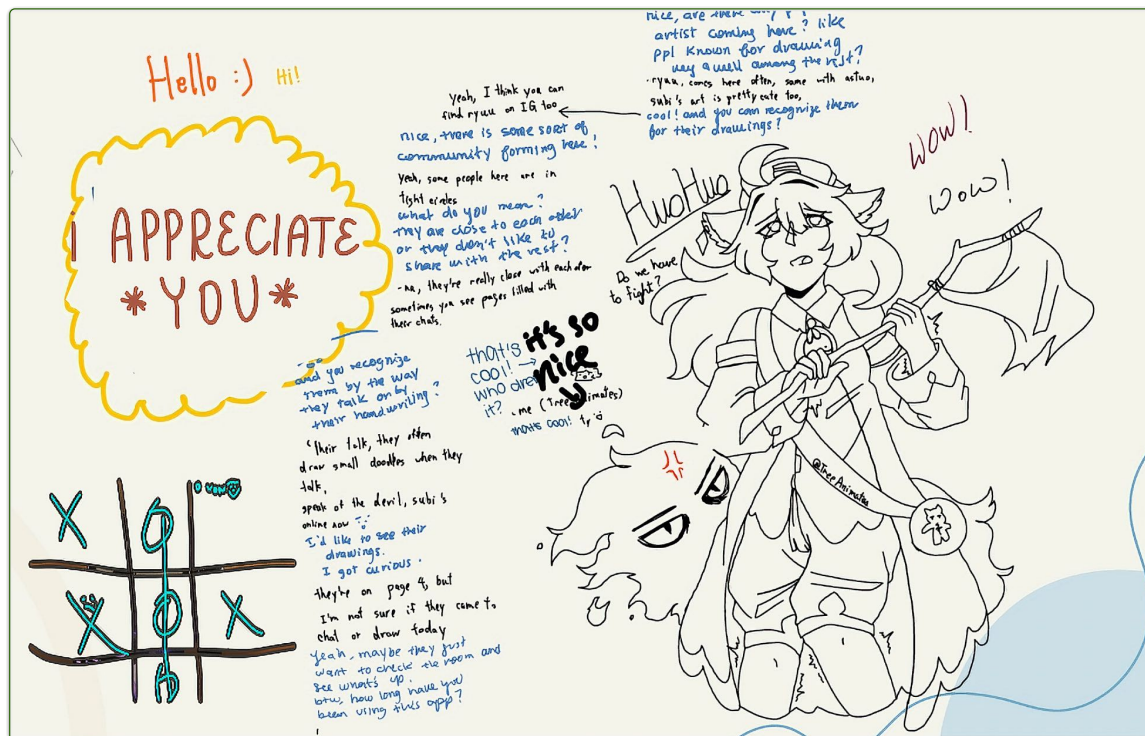 Hello :)
Hi!
I APPRECIATE
*YOU*
nice, are there any
artist coming here? like
ppl known for drawing
rly well among the rest?
-ryuu, comes here often, same with astuo,
subi's art is pretty cute too,
cool! and you can recognize them
for their drawings?
Yeah, I think you can
find ryuu on IG too
nice, there is some sort of
community forming here!
Yeah, some people here are in
tight circles
what do you mean?
they are close to each other
or they don't like to
share with the rest?
-na, they're really close with each other
sometimes you see pages filled with
their chats.
and you recognize
them by the way
they talk or by
their handwriting?
Their talk, they often
draw small doodles when they
talk,
speak of the devil, subi's
online now
I'd like to see their
drawings.
I got curious.
they're on page 4, but
I'm not sure if they came to
chat or draw today
yeah, maybe they just
want to check the room and
see what's up.
btw, how long have you
been using this app?
that's
cool! →
who drew
it?
it's so
nice
-me (TreeAnimates)
that's cool! ty
HuoHuo
Do we have
to fight?
WOW!
WOW!
@TreeAnimates
X O
X O X
O